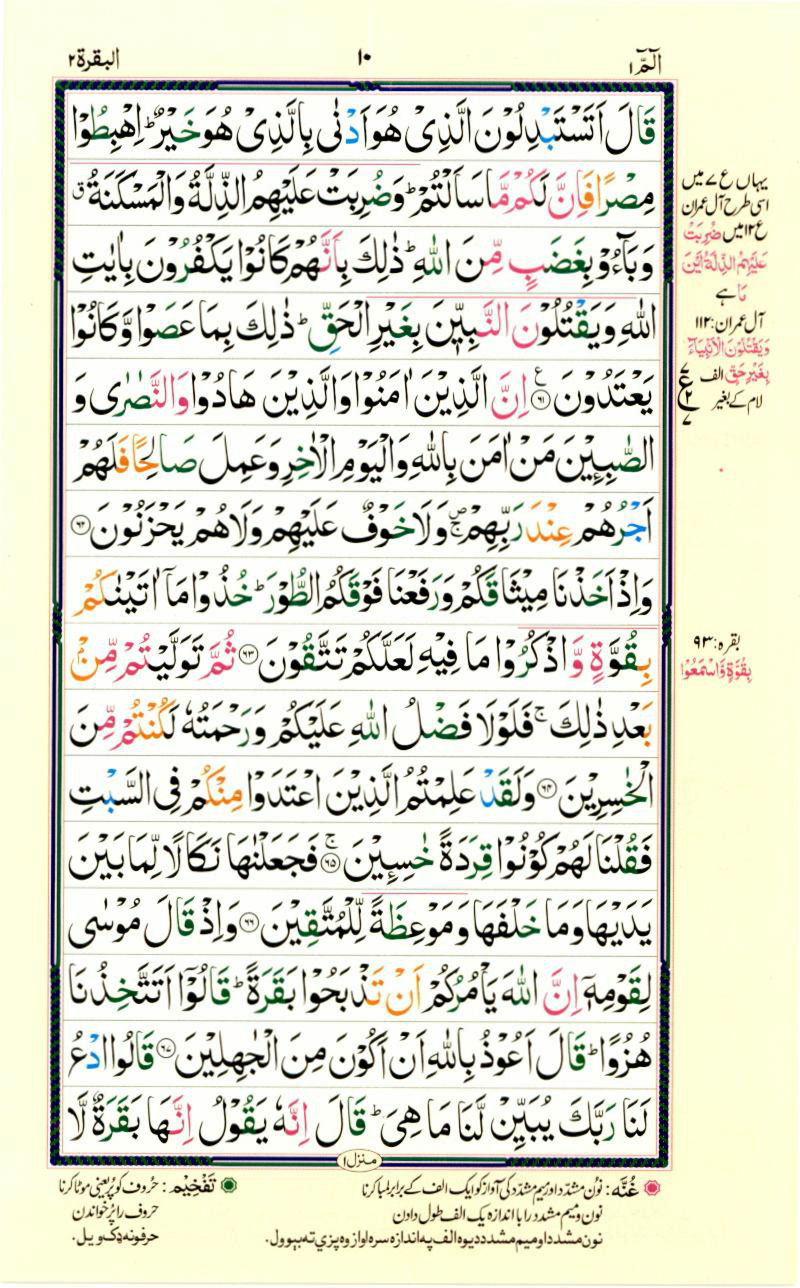 الٓمّٓ ١
١٠
البقرة ٢
قَالَ اَتَسْتَبْدِلُوْنَ الَّذِیْ هُوَ اَدْنٰی بِالَّذِیْ هُوَ خَیْرٌ ؕ اِهْبِطُوْا
مِصْرًا فَاِنَّ لَكُمْ مَّا سَاَلْتُمْ ؕ وَضُرِبَتْ عَلَیْهِمُ الذِّلَّةُ وَالْمَسْكَنَةُ ۗ
وَبَآءُوْ بِغَضَبٍ مِّنَ اللّٰهِ ؕ ذٰلِكَ بِاَنَّهُمْ كَانُوْا یَكْفُرُوْنَ بِاٰیٰتِ
اللّٰهِ وَیَقْتُلُوْنَ النَّبِیّٖنَ بِغَیْرِ الْحَقِّ ؕ ذٰلِكَ بِمَا عَصَوْا وَّكَانُوْا
یَعْتَدُوْنَ ﴿٦١﴾ اِنَّ الَّذِیْنَ اٰمَنُوْا وَالَّذِیْنَ هَادُوْا وَالنَّصٰرٰی وَ
الصّٰبِـِٕیْنَ مَنْ اٰمَنَ بِاللّٰهِ وَالْیَوْمِ الْاٰخِرِ وَعَمِلَ صَالِحًا فَلَهُمْ
اَجْرُهُمْ عِنْدَ رَبِّهِمْ ۪ۚ وَلَا خَوْفٌ عَلَیْهِمْ وَلَا هُمْ یَحْزَنُوْنَ ﴿٦٢﴾
وَاِذْ اَخَذْنَا مِیْثَاقَكُمْ وَرَفَعْنَا فَوْقَكُمُ الطُّوْرَ ؕ خُذُوْا مَاۤ اٰتَیْنٰكُمْ
بِقُوَّةٍ وَّاذْكُرُوْا مَا فِیْهِ لَعَلَّكُمْ تَتَّقُوْنَ ﴿٦٣﴾ ثُمَّ تَوَلَّیْتُمْ مِّنْۢ
بَعْدِ ذٰلِكَ ۚ فَلَوْلَا فَضْلُ اللّٰهِ عَلَیْكُمْ وَرَحْمَتُهٗ لَكُنْتُمْ مِّنَ
الْخٰسِرِیْنَ ﴿٦٤﴾ وَلَقَدْ عَلِمْتُمُ الَّذِیْنَ اعْتَدَوْا مِنْكُمْ فِی السَّبْتِ
فَقُلْنَا لَهُمْ كُوْنُوْا قِرَدَةً خٰسِـِٕیْنَ ﴿٦٥﴾ ۚ فَجَعَلْنٰهَا نَكَالًا لِّمَا بَیْنَ
یَدَیْهَا وَمَا خَلْفَهَا وَمَوْعِظَةً لِّلْمُتَّقِیْنَ ﴿٦٦﴾ وَاِذْ قَالَ مُوْسٰی
لِقَوْمِهٖۤ اِنَّ اللّٰهَ یَاْمُرُكُمْ اَنْ تَذْبَحُوْا بَقَرَةً ؕ قَالُوْۤا اَتَتَّخِذُنَا
هُزُوًا ؕ قَالَ اَعُوْذُ بِاللّٰهِ اَنْ اَكُوْنَ مِنَ الْجٰهِلِیْنَ ﴿٦٧﴾ قَالُوا ادْعُ
لَنَا رَبَّكَ یُبَیِّنْ لَّنَا مَا هِیَ ؕ قَالَ اِنَّهٗ یَقُوْلُ اِنَّهَا بَقَرَةٌ لَّا
یہاں ع ٧ میں
اسی طرح آل عمران
ع ١٢ میں ضُرِبَتْ
عَلَیْهِمُ الذِّلَّةُ اَیْنَ
مَا ہے
آل عمران: ١١٢
وَیَقْتُلُوْنَ الْاَنْبِیَآءَ
بِغَیْرِ حَقٍّ الف
لام کے بغیر
٧
ع
٢
٧
بقرہ: ٩٣
بِقُوَّةٍ وَّاسْمَعُوْا
منزل ١
غُنَّه: نون مشدّد اور میم مشدّد کی آواز کو ایک الف کے برابر لمبا کرنا
نون و میم مشدد را با اندازہ یک الف طول دادن
نون مشدد او میم مشدد دیوہ الف په اندازه سره اواز وه پزې ته بېوول.
تَفْخِیْم: حروف کو پُر یعنی موٹا کرنا
حروف را پُر خواندن
حرفونه ډک ویل.